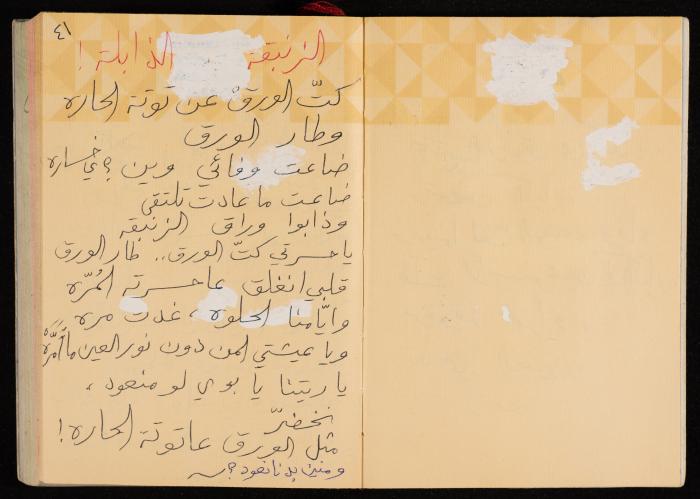 ٤١
الزنبقة الذابلة !
كتّ الورقْ عن توتة الحاره
وطار الورق
ضاعت وفائي وين ؟ في خساره
ضاعت ما عادت تلتقي
وذابوا وراق الزنبقه
يا حسرتي كتّ الورق.. طار الورق
قلبي انغلق عا حسرته المُرّه
وايّامنا الحلوه ، غدت مره
ويا عيشتي لمن دون نور العين ما أمرَّهْ
يا ريتنا يا بوي لو منعود ،
نخضرّ
مثل الورق عا توتة الحاره !
ومنين بدنا نعود ؟